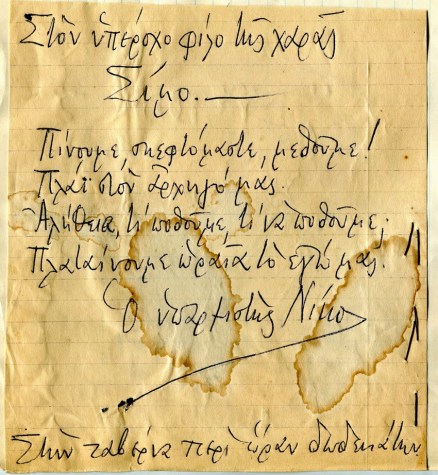 Στὸν ὑπέροχο φίλο τῆς χαρᾶς
Σίμο.—
Πίνουμε, σκεφτόμαστε, μεθοῦμε!
Πλάϊ στὸν ἀρχηγό μας.
Ἀλήθεια, τί ποθοῦμε, τί νὰ ποθοῦμε;
Πλαταίνουμε ὡραῖα τὸ ἐγώ μας.
Ὁ ὑπαρξιστὴς Νίκο
Στὴν ταβέρνα περὶ ὥραν δωδεκάτην